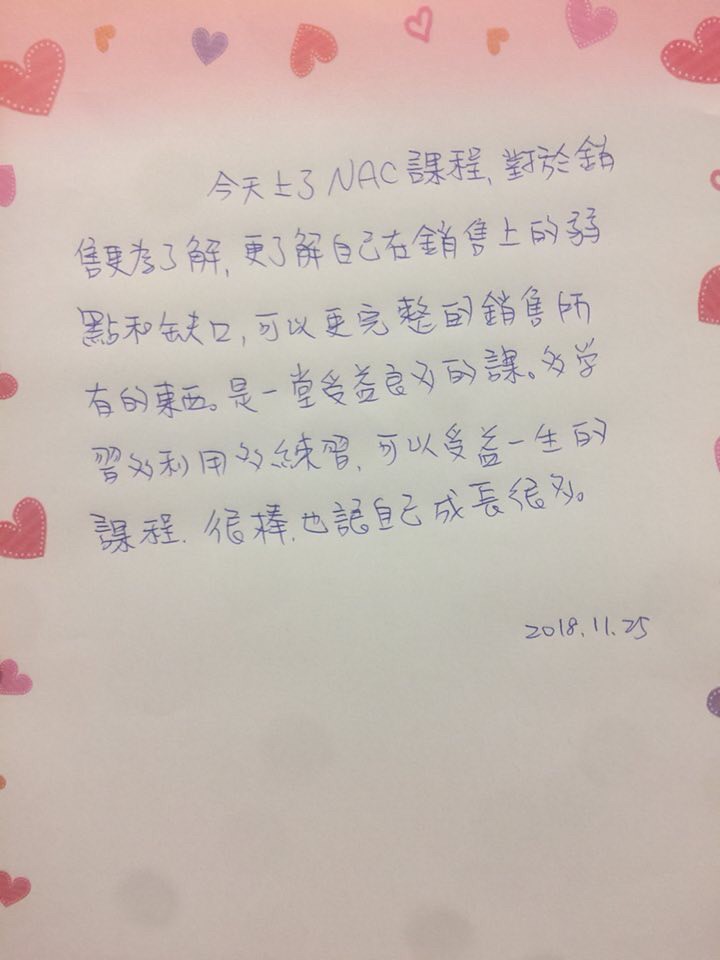 今天上了NAC課程, 對於銷
售更為了解, 更了解自己在銷售上的弱
點和缺口, 可以更完整的銷售師
有的東西。是一堂受益良多的課。多学
習多利用多練習, 可以受益一生的
課程. 很棒, 也讓自己成長很多。
2018.11.25